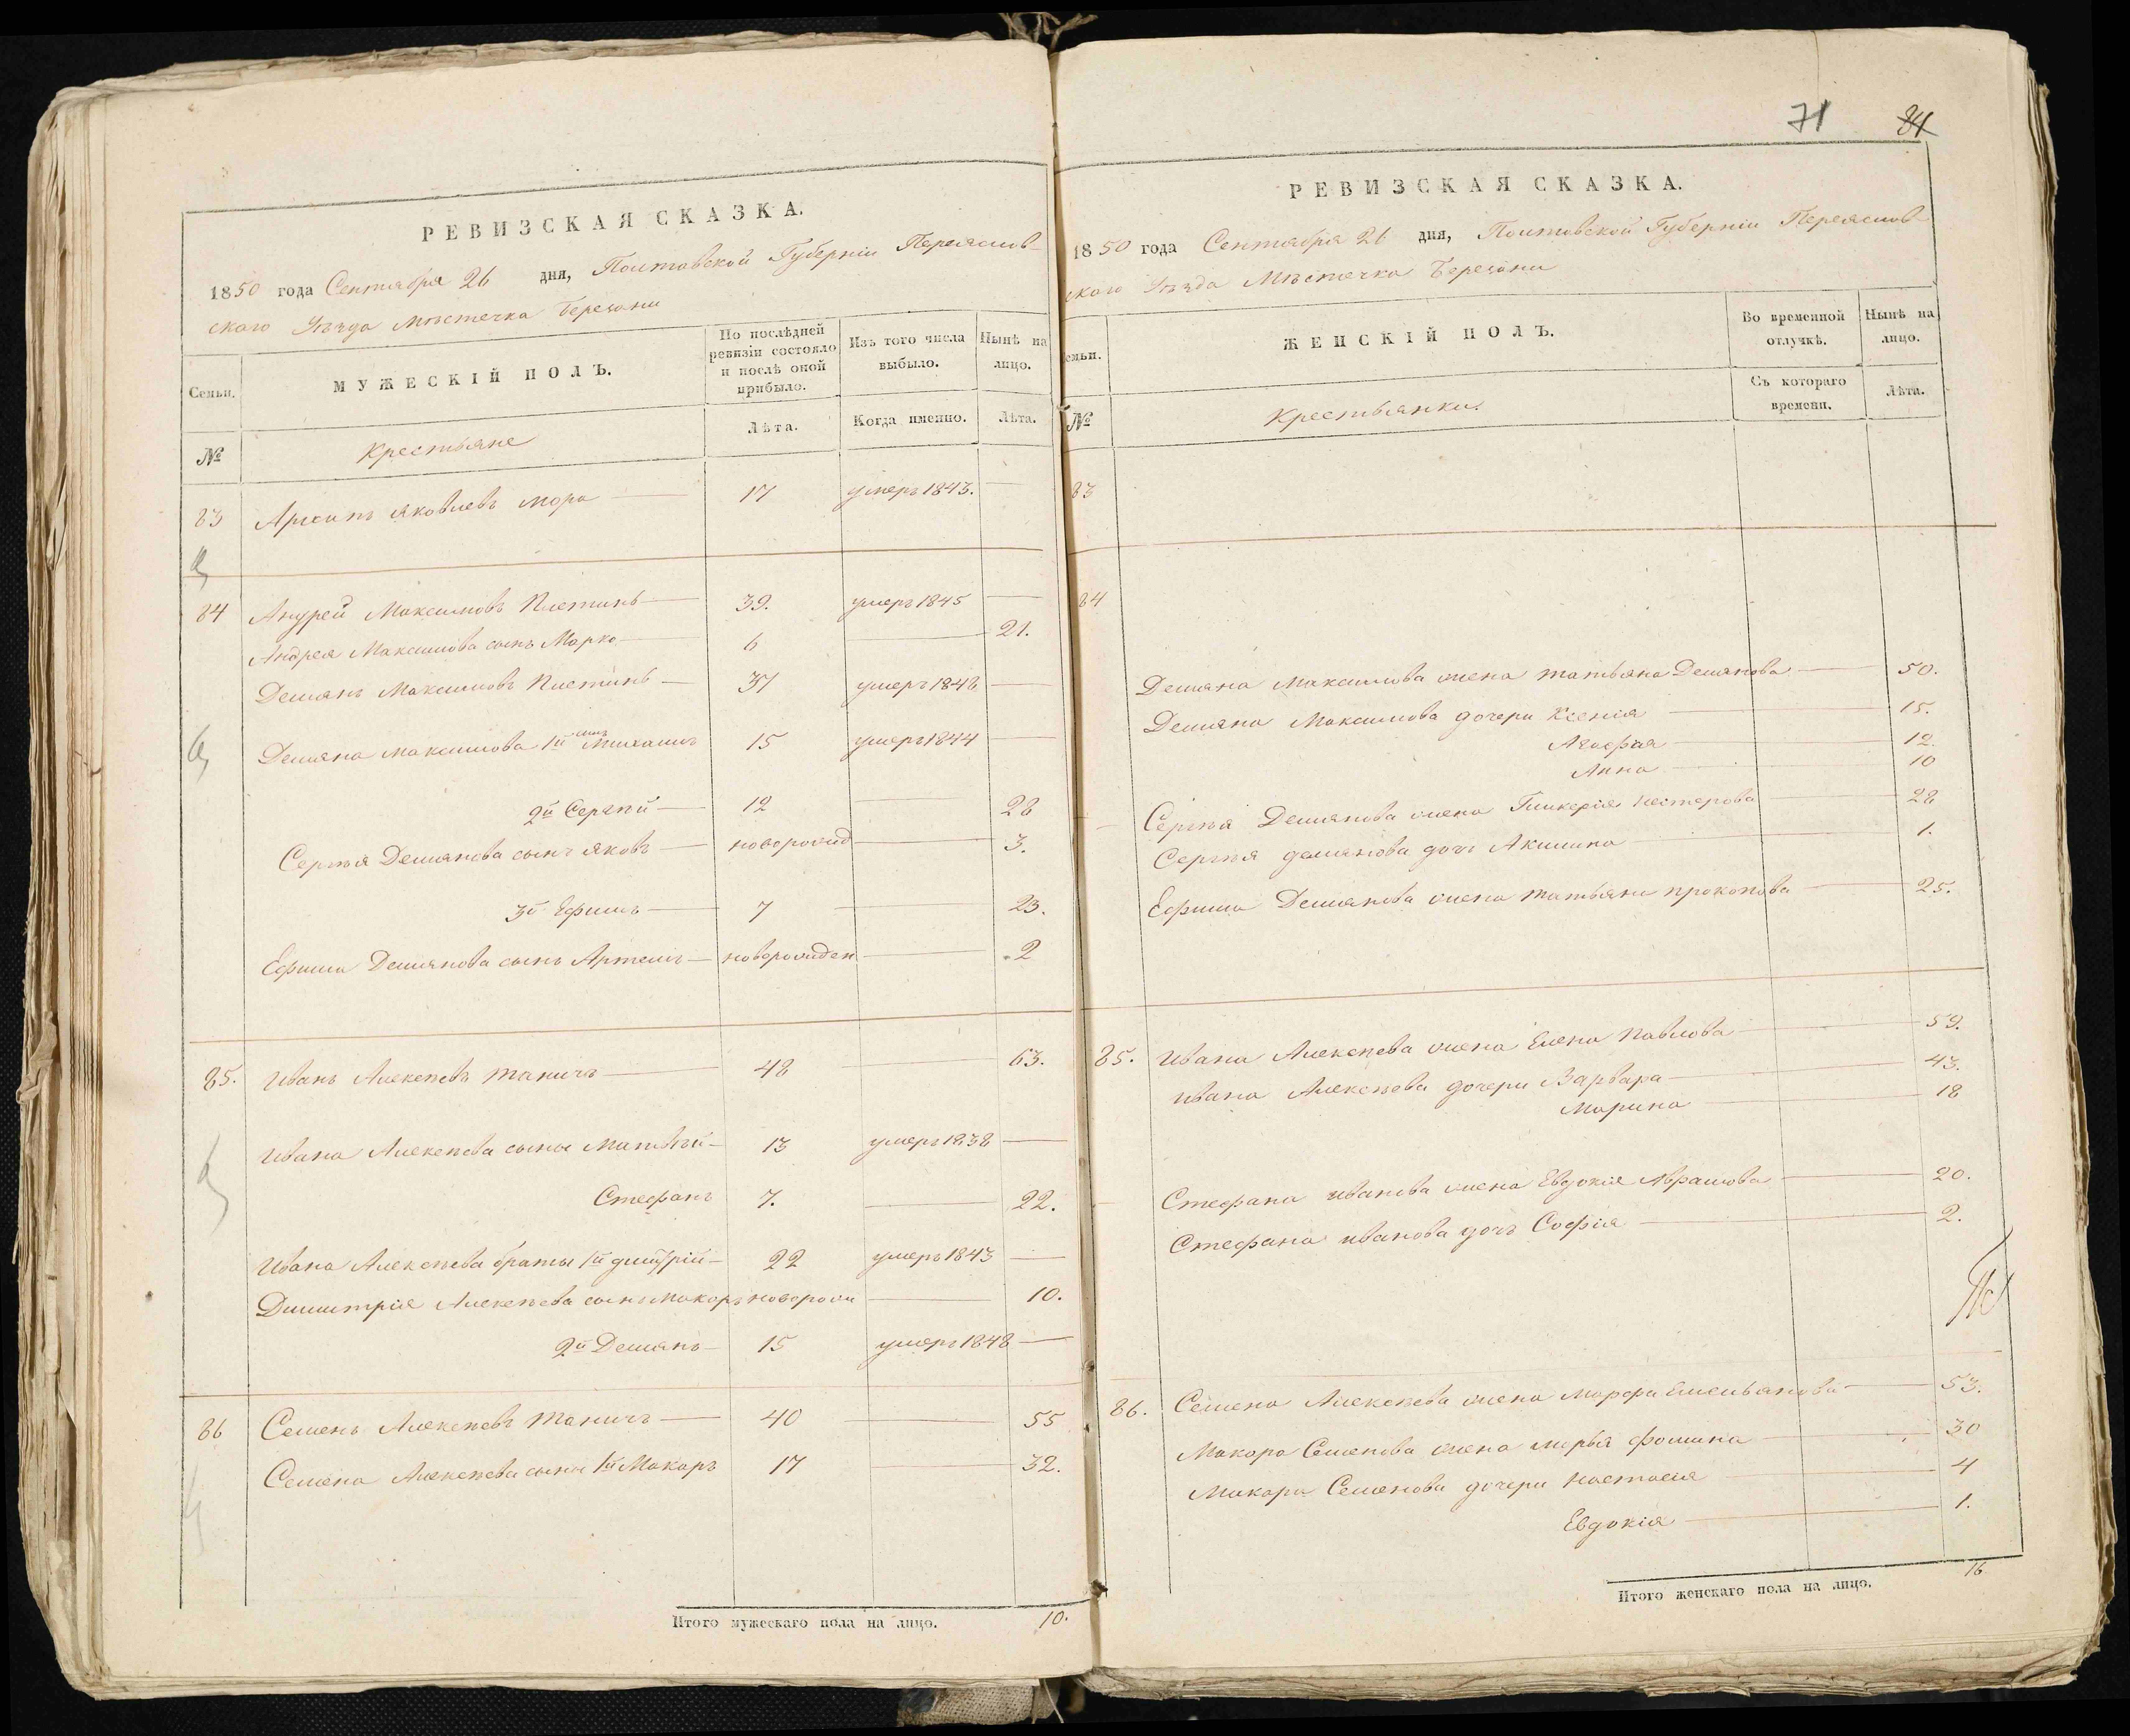 РЕВИЗСКАЯ СКАЗКА.
1850 года Сентября 26 дня, Полтавской Губерніи Переяслов-
скаго Уѣзда Мѣстечка Березани
Семьи. МУЖЕСКІЙ ПОЛЪ. По послѣдней ревизіи состояло и послѣ оной прибыло. Изъ того числа выбыло. Нынѣ на лицо.
№ Крестьяне Лѣта. Когда именно. Лѣта.
83 Архипъ Яковлевъ Мора 17 умеръ 1843.
84 Андрей Максимовъ 39. умеръ 1845
Андрея Максимова сынъ Марко 6 21.
Демянъ Максимовъ 37 умеръ 1848
Демяна Максимова 1й сынъ Михаилъ 15 умеръ 1844
2й Сергѣй 12 28
Сергѣя Демянова сынъ Яковъ новорожд 3.
3й Ефимъ 7 23.
Ефима Демянова сынъ Артемъ новорожден 2
85. Иванъ Алексѣевъ Таничъ 48 63.
Ивана Алексѣева сыны Матвѣй 13 умеръ 1838
Стефанъ 7. 22.
Ивана Алексѣева браты 1й Дмитрій 22 умеръ 1843
Димитрія Алексѣева сынъ Макаръ новорож 10.
2й Демянъ 15 умеръ 1848
86 Семенъ Алексѣевъ Таничъ 40 55
Семена Алексѣева сыны 1й Макаръ 17 32.
Итого мужескаго пола на лицо. 10.
71 84
РЕВИЗСКАЯ СКАЗКА.
1850 года Сентября 26 дня, Полтавской Губерніи Переяслов-
скаго Уѣзда Мѣстечка Березани
семьи. ЖЕНСКІЙ ПОЛЪ. Во временной отлучкѣ. Нынѣ на лицо.
№ Крестьянки. Съ котораго времени. Лѣта.
83
84
Демяна Максимова жена Татьяна Демянова 50.
Демяна Максимова дочери Ксенія 15.
Агафія 12.
Анна 10
Сергѣя Демянова жена Гликерія Нестерова 28
Сергѣя Демянова дочь Акилина 1.
Ефима Демянова жена Татьяна Прокопова 25.
85. Ивана Алексѣева жена Елена Павлова 59.
Ивана Алексѣева дочери Варвара 43.
Марина 18
Стефана Иванова жена Евдокія Аврамова 20.
Стефана Иванова дочь Софія 2.
86. Семена Алексѣева жена Марфа Емельянова 53.
Макара Семенова жена Марья Фомина 30
Макара Семенова дочери Настасія 4
Евдокія 1.
Итого женскаго пола на лицо. 16